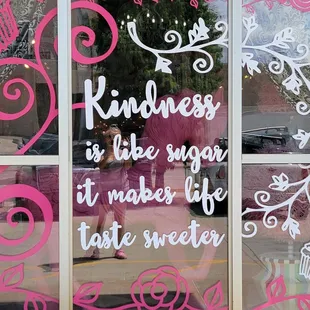 Kindness
is like sugar
it makes life
taste sweeter